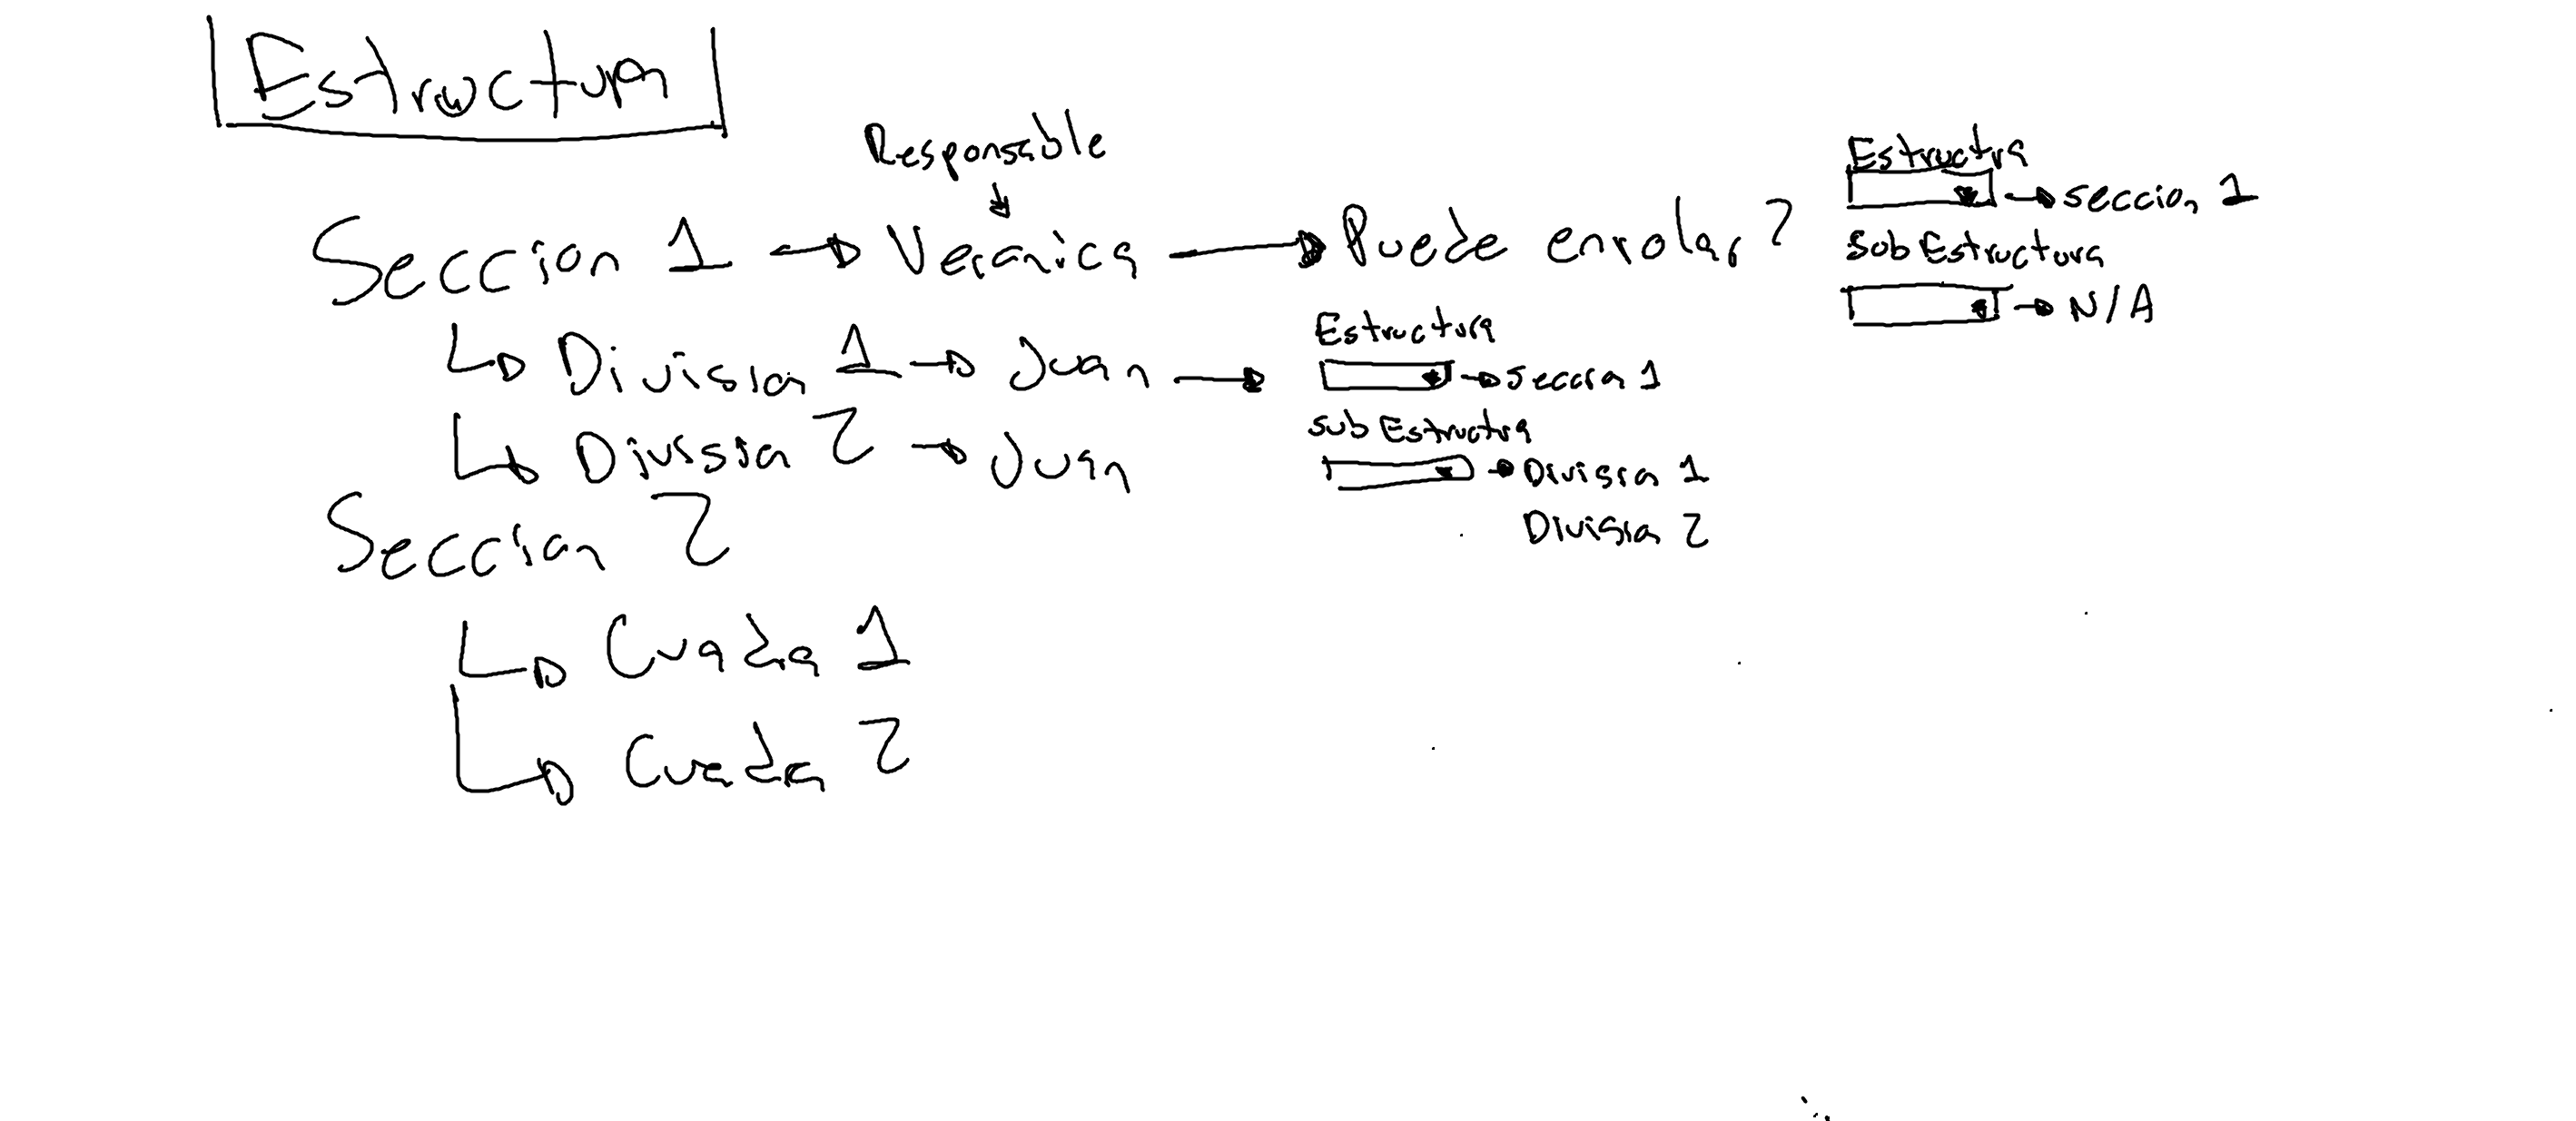 Estructura
Responsable
Seccion 1 → Veronica → Puede enrolar?
Estructra
→ Seccion 1
Sub Estructura
→ N/A
Division 1 → Juan →
Estructura
→ Seccion 1
Sub Estructra
→ Division 1
Division 2
Division 2 → Juan
Seccion 2
Cuadra 1
Cuadra 2